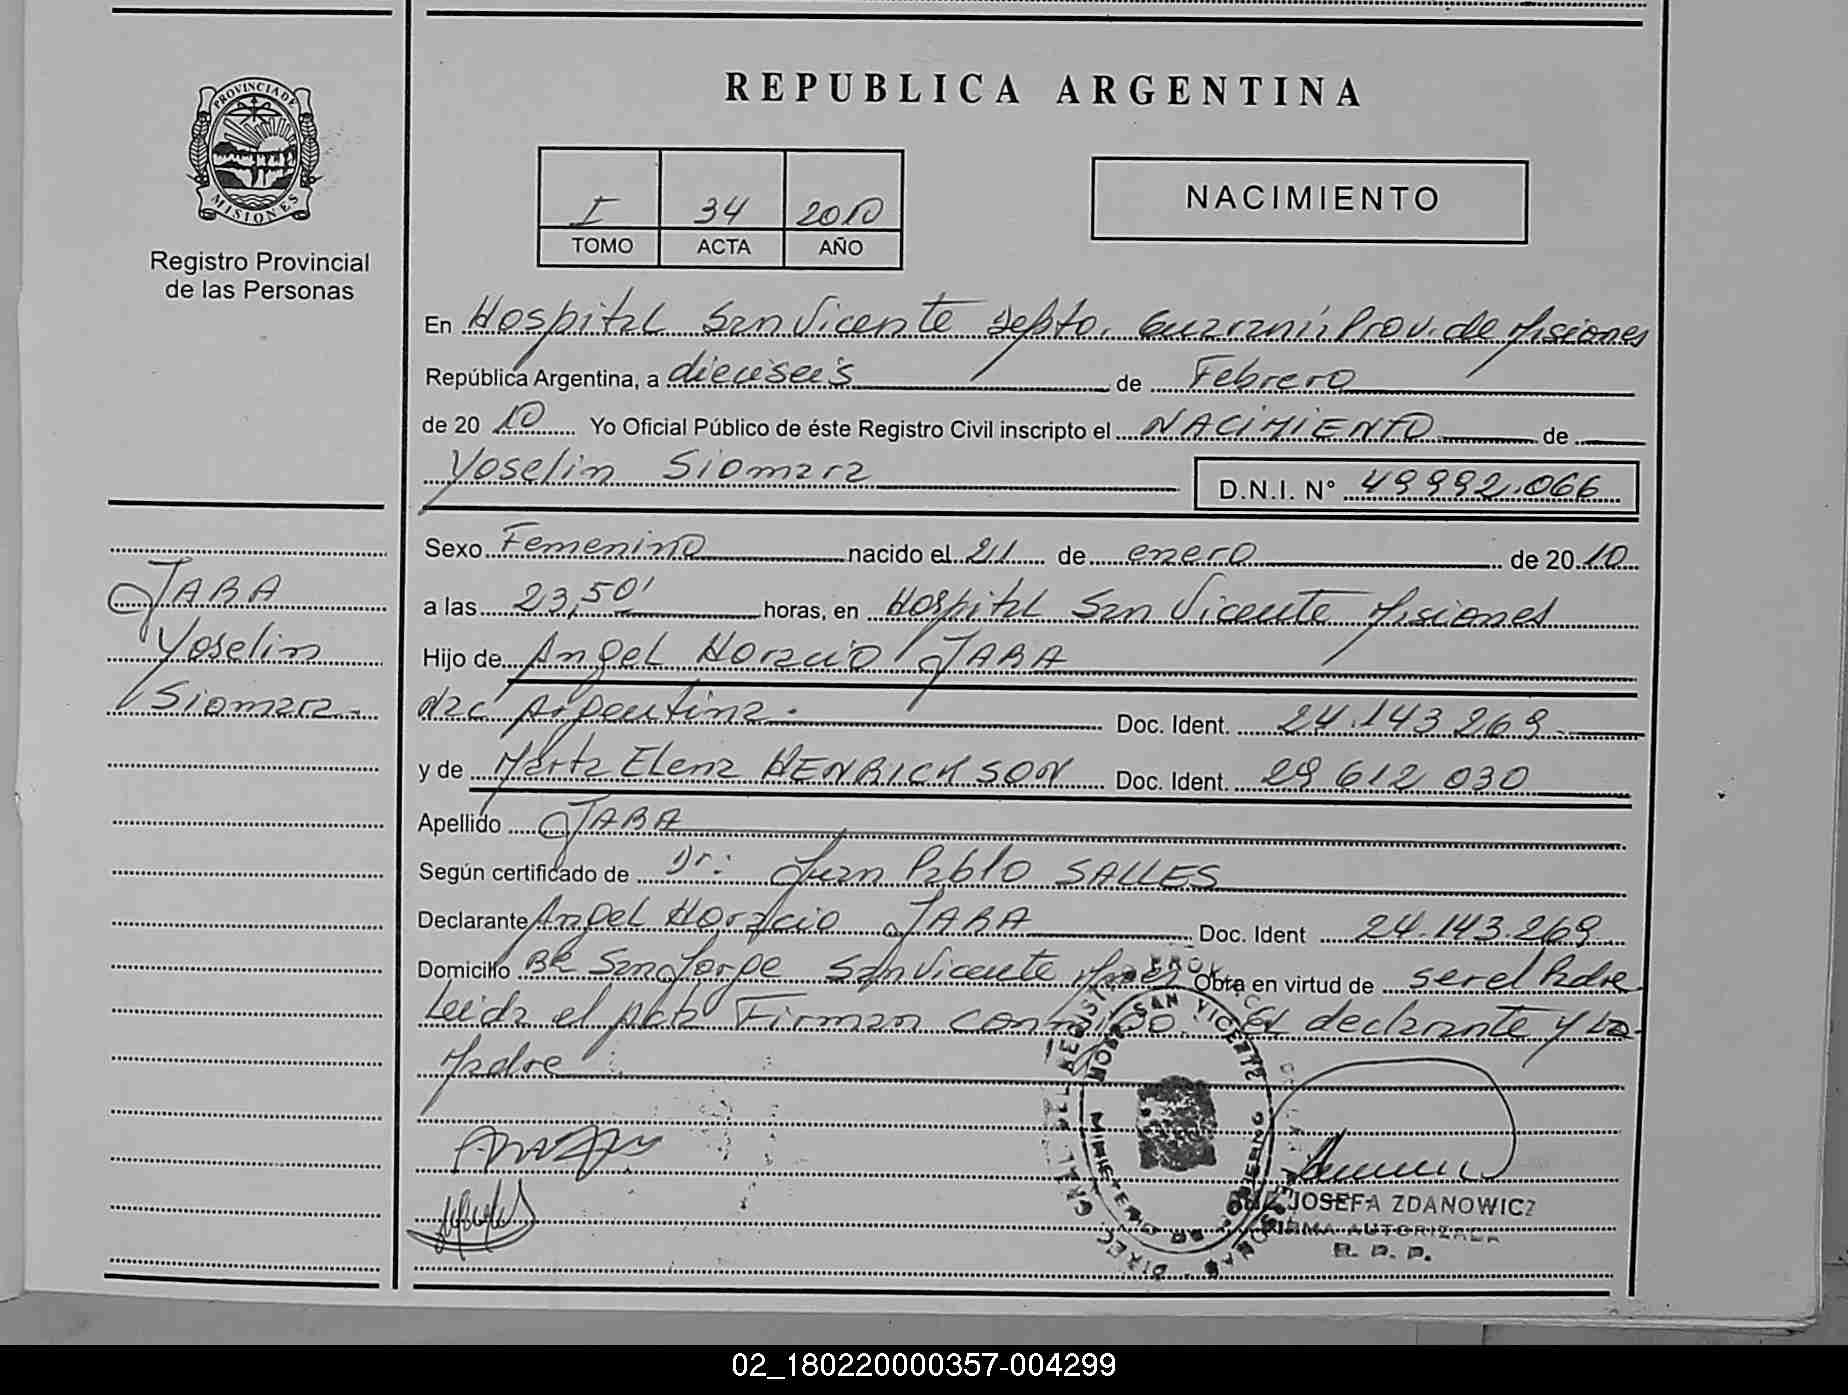 REPUBLICA ARGENTINA
PROVINCIA DE
MISIONES
Registro Provincial
de las Personas
I 34 2010
TOMO ACTA AÑO
NACIMIENTO
En Hospital San Vicente Depto. Guaraní Prov. de Misiones
República Argentina, a dieciseis de Febrero
de 2010 Yo Oficial Público de éste Registro Civil inscripto el NACIMIENTO de
Yoselin Siomara
D.N.I. N° 49992.066
JARA
Yoselin
Siomara.-
Sexo Femenino nacido el 21 de enero de 2010
a las 23,50' horas, en Hospital San Vicente Misiones
Hijo de Angel Horacio JARA
nac Argentina. Doc. Ident. 24.143.269
y de Marta Elena HENRICKSON Doc. Ident. 29 612 030
Apellido JARA
Según certificado de Dr: Juan Pablo SALLES
Declarante Angel Horacio JARA Doc. Ident 24.143.269
Domicilio Bº San Jorge San Vicente Obra en virtud de ser el Padre
Leida el Acta Firman conmigo. El declarante y la
Madre
HOSP. SAN VICENTE
JOSEFA ZDANOWICZ
FIRMA AUTORIZADA
R. P. P.
02_180220000357-004299